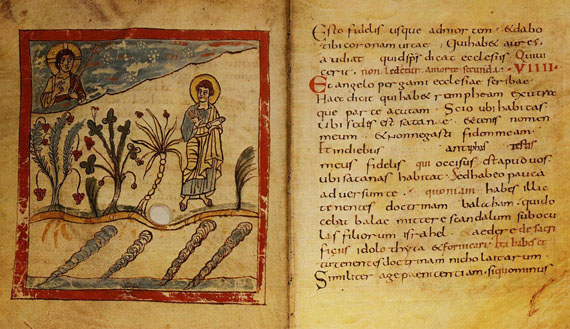 Esto fidelis usque ad mortem · & dabo
tibi coronam vitae · Qui hab& aures,
audiat quid sps dicat ecclesiis Qui vi
cerit · non ledetur a morte secunda · VIIII ·
Et angelo pergami ecclesiae scribae
Haec dicit qui hab& rompheam ex utra
que parte acutam · Scio ubi habitas
ubi sedis est satanae · & tenes nomen
meum · & non negasti fidem meam ·
Et in diebus antiphas testis
meus fidelis qui occisus est apud vos
ubi satanas habitat · Sed habeo pauca
adversum te · quoniam habes illic
tenentes doctrinam balaham · qui do
cebat balac mittere scandalum subocu
lis filiorum israhel · & aedere de sacri
ficiis idolo thyta & fornicari · Ita habes et
tu tenentes doctrinam nicholaitarum
Similiter age paenitentiam · si quominus